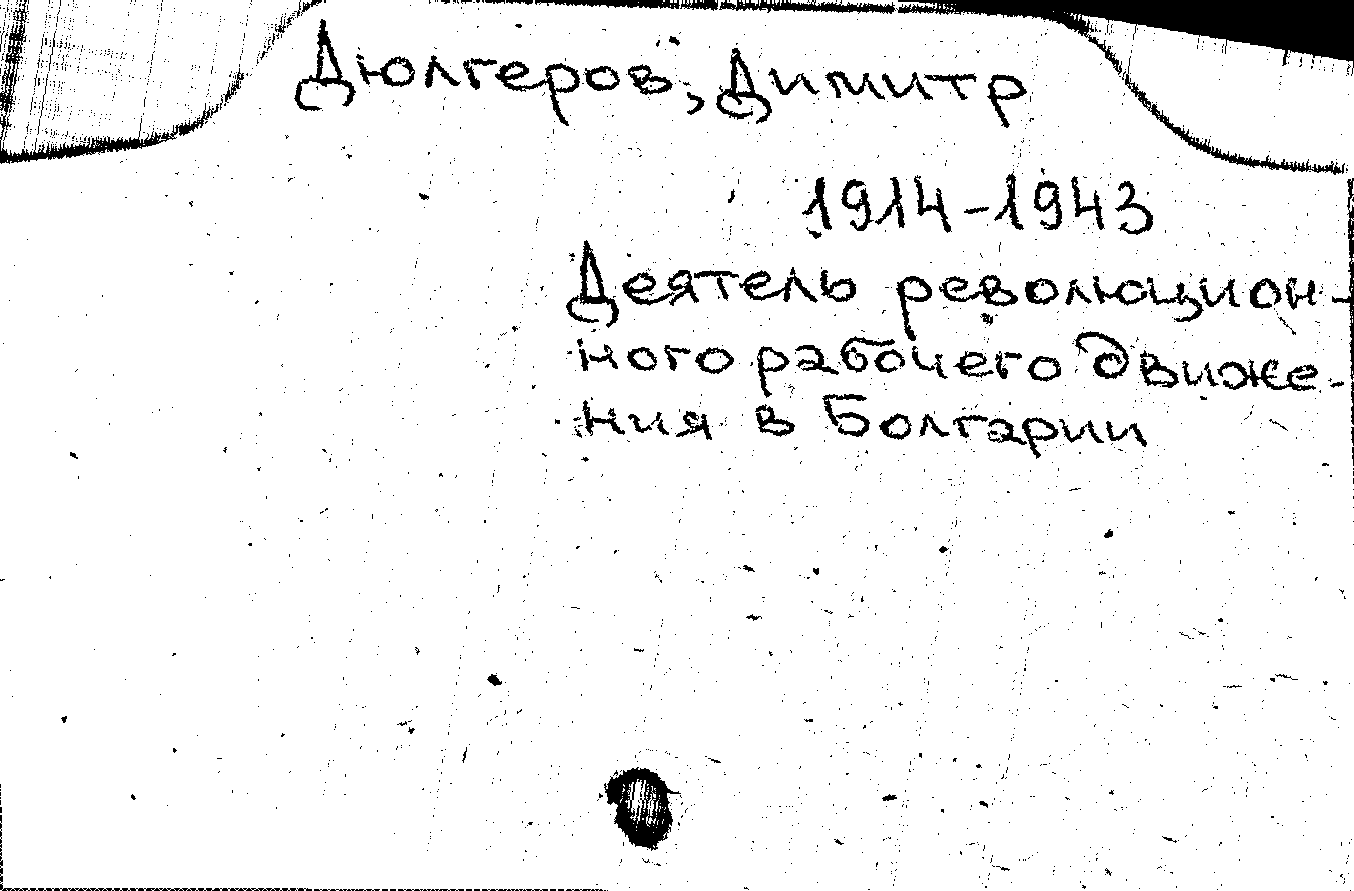 Дюлгеров, Димитр
1914-1943
Деятель революцион-
ного рабочего движе-
ния в Болгарии